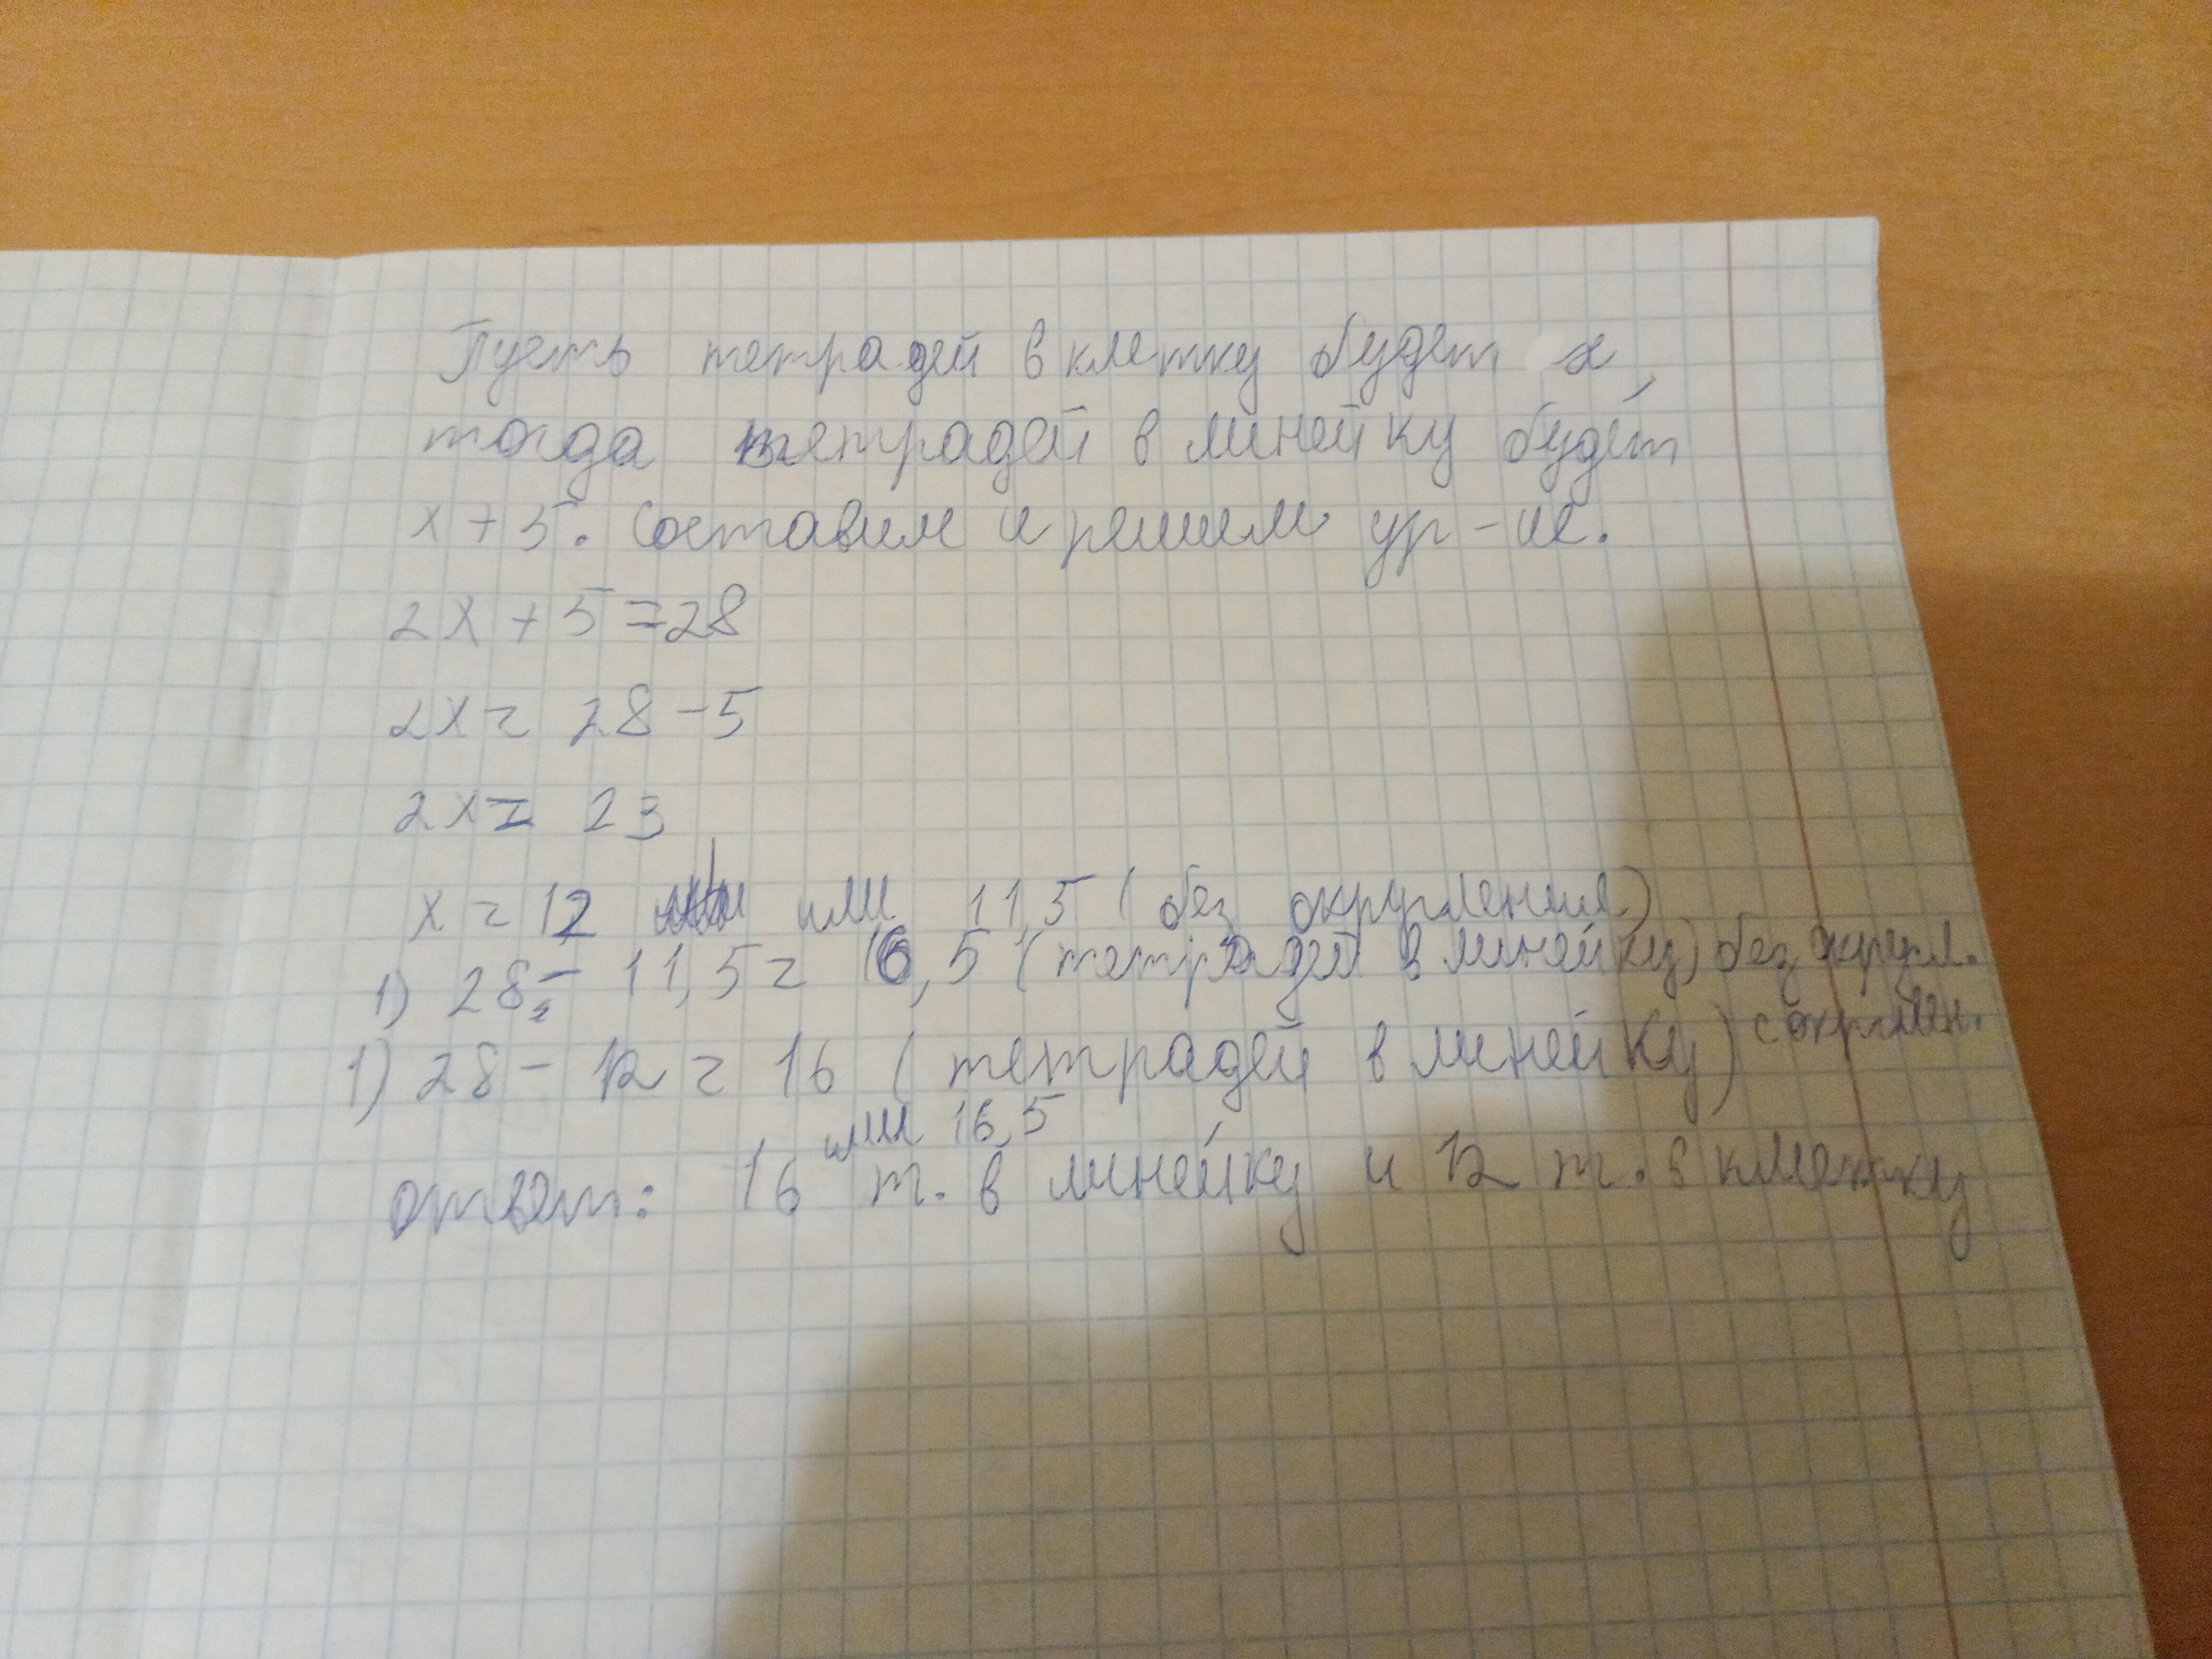 Пусть тетрадей в клетку будет x,
тогда тетрадей в линейку будет
x + 5. Составим и решим ур-ие.
2x + 5 = 28
2x = 28 - 5
2x = 23
x = 12 или 11,5 (без округления)
1) 28 - 11,5 = 16,5 (тетрадей в линейку) без округл.
1) 28 - 12 = 16 (тетрадей в линейку) с округлен.
или 16,5
ответ: 16 т. в линейку и 12 т. в клетку